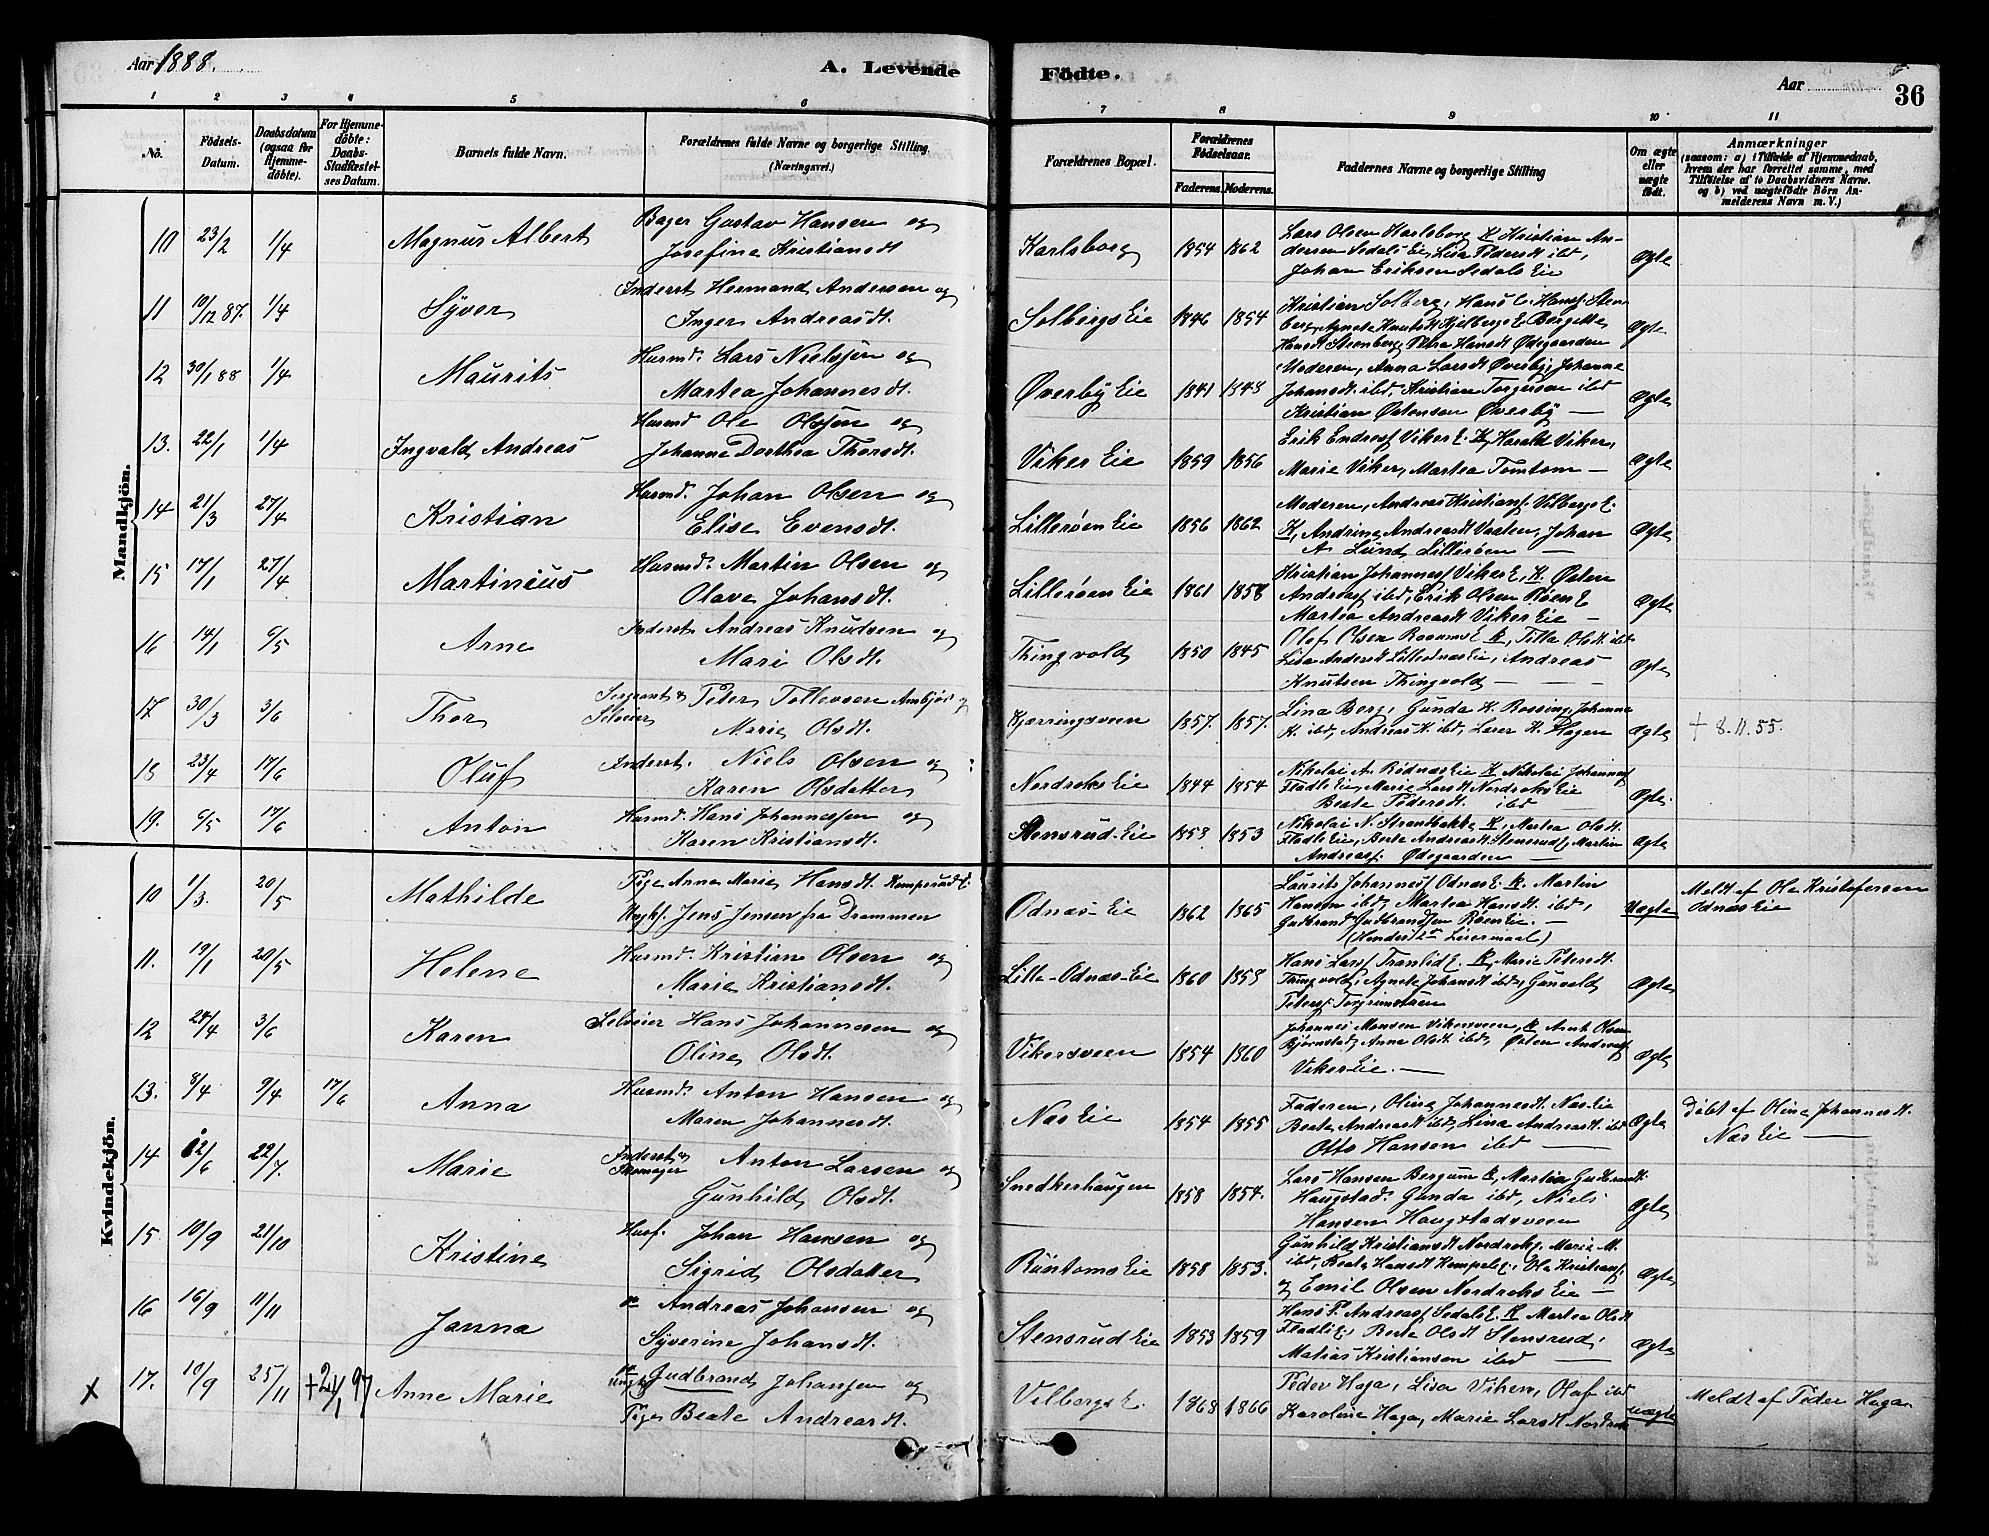 Aar 1888.
A. Levende
Födte.
Aar
36
1 2 3 4 5 6 7 8 9 10 11
No.
Födsels-
Datum.
Daabsdatum
(ogsaa for
Hjemme-
döbte).
For Hjemme-
döbte:
Daabs-
Stadfæstel-
ses Datum.
Barnets fulde Navn.
Forældrenes fulde Navne og borgerlige Stilling
(Næringsvei.)
Forældrenes Bopæl.
Forældrenes
Födselsaar.
Faderens. Moderens.
Faddernes Navne og borgerlige Stilling
Om ægte
eller
uægte
födt.
Anmærkninger
(saasom: a) i Tilfælde af Hjemmedaab,
hvem der har forrettet samme, med
Tilföielse af to Daabsvidners Navne.
og b) ved uægtefödte Börn An-
melderens Navn m. V.)
Mandkjön.
10 23/2 1/4 Magnus Albert Bager Gustav Hansen og
Josefine Kristiansdt
Karlsborg 1854 1862 Lars Olsen Karlsborg K Kristian An-
dersen Sedals Eie, Lisa Pedersdt ibd,
Johan Eriksen Sedals Eie
Ægte
11 19/12 87. 1/4 Syver Inderst Hermand Andersen og
Inger Andreasdt.
Solbergs Eie 1846 1854 Kristian Solberg, Hans C. Hansf. Sten-
berg, Agnete Knutsdt Kjelbergs E. Bergette
Hansdt Stenberg, Petra Hansdt Ødegaarden
Ægte
12 30/1 88 1/4 Maurits Husmd. Lars Nielsjen og
Martea Johannesdt.
Øverby Eie 1841 1848 Moderen, Anna Larsdt Øverby, Johanne
Johansdt. ibd, Kristian Torgersen ibd
Kristian Østensen Øverby —
Ægte
13. 22/1 1/4 Ingvald Andreas Husmd Ole Olsjen og
Johanne Dorthea Thorsdt.
Viker Eie 1859 1856 Erik Endresf Viker E. K, Harald Viker,
Marie Viker, Martea Tomtom —
Ægte
14 21/3 27/4 Kristian Husmd. Johan Olsen og
Elise Evensdt.
Lillerøen Eie 1856 1862 Moderen, Andreas Kristiansf. Vilbergs E.
K, Andrine Andreasdt Vaaten, Johan
A. Lund, Lillerøen —
Ægte
15 17/1 27/4 Martinius Husmd. Martin Olsen og
Olave Johansdt.
Lillerøens Eie 1861 1858 Kristian Johannesf Viker E, K. Østen
Andreasf ibd, Erik Olsen Røen E
Martea Andreasdt Viker Eie —
Ægte
16 14/1 6/5 Arne Inderst Andreas Knudsen og
Mari Olsdt.
Thingvold 1850 1845 Olof Olsen Raanms E K, Tilla Olsdt. ibd
Lisa Andersdt Lilleodnæs Eie, Andreas
Knutsen Thingvold —
Ægte
17 30/3 3/6 Thor Sergeant & Selveier Peter Tollevsen Ambjør og
Marie Olsdt.
Kjærringsveen 1857. 1857. Lina Berg, Gunda H. Rossing, Johanna
H. ibd, Andreas H. ibd, Lars H. Hagen
Ægte + 8.11.55.
18 23/4 17/6 Oluf Inderst. Niels Olsen og
Karen Olsdatter
Nordroks Eie 1844 1854 Nikolai A. Bødnæs Eie K Nikolai Johannesf
Fladle Eie, Marie Larsdt Nordroks Eie
Beate Pedersdt. ibd —
Ægte
19. 6/5 17/6 Anton Husmd. Hans Johannesjen og
Karen Kristiansdt.
Stensrud Eie 1853 1853 Nikolai N. Strandbakke, K, Martea Olsdt.
Fladle Eie, Berte Andreasdt Stensrud, Martin
Andreasf. Ødegaarden —
Ægte
Kvindekjön.
10 1/3. 20/5 Mathilde Pige Anne Marie Hansdt. Kompsrud E.
Ugkf. Jens Jensen fra Drammen
Odnæs Eie 1862 1865 Laurits Johannesf Odnæs E. K. Martin
Hansen ibd, Martea Hansdt. ibd,
Gudbrand Gudbrandsen Røen Eie. —
(Hendes 2det Leiermaal)
Uægte Meldt af Ole Kristofersen
Odnæs Eie
11. 19/1 20/5 Helene Husmd. Kristian Olsen og
Marie Kristiansdt.
Lille-Odnæs-Eie 1860 1858 Hans Larsf Tranlid E. K, Marie Petersdt.
Thingvold, Agnete Johansdt ibd, Gunvald
Petersf. Torgrimstuen
Ægte
12 28/4 3/6 Karen Selveier Hans Johannesen og
Oline Olsdt.
Vikersveen 1854 1860 Johannes Monsen Vikersveen, K Amt Olsen
Bjørnstad, Anne Olsdt. ibd, Østen Andreasf
Viker Eie. —
Ægte
13. 8/4 9/4 17/6 Anna Husmd. Anton Hansen og
Maren Johannesdt.
Næs Eie 1854 1855 Faderen, Olina Johannesdt. Næs Eie
Beate Andreasdt ibd, Lina Andreasdt. ibd
Otto Hansen ibd —
Ægte Döbt af Olina Johannesdt.
Næs Eie —
14 12/6 22/7. Marie Inderst & Skomager Anton Larsen og
Gunhild Olsdt.
Snedkerhaugen 1858 1854. Lars Hansen Bergum K, Martea Gudbrandsdt.
Haugstad, Gunda ibd, Niels
Hansen Haugstadsveen
Ægte
15 10/9 21/10 Kristine Husf. Johan Hansen og
Sigrid Olsdatter
Runtoms Eie 1858 1853. Gunhild Kristiansdt Nordrok, Marie M.
ibd, Beate Hansdt Kompsl E., Ole Kristiansf.
og Emil Olsen Nordroks Eie —
Ægte
16 16/9 11/11 Janna do Andreas Johansen og
Syverine Johansdt.
Stensrud Eie 1853 1859 Hans P. Andreasf Sedals E. K Martea Olsdt
Fladli E, Berte Olsdt Stensrud,
Matias Kristiansen ibd —
Ægte
X 17. 10/9 25/11 +21/1 97 Anne Marie Ungk Gudbrand Johansen og
Pige Beate Andreasdt.
Vilbergs E. 1868 1866 Peder Haga, Lisa Viken, Olaf ibd
Karoline Haga, Marie Larsdt Nordrok
uægte Meldt af Peder Haga